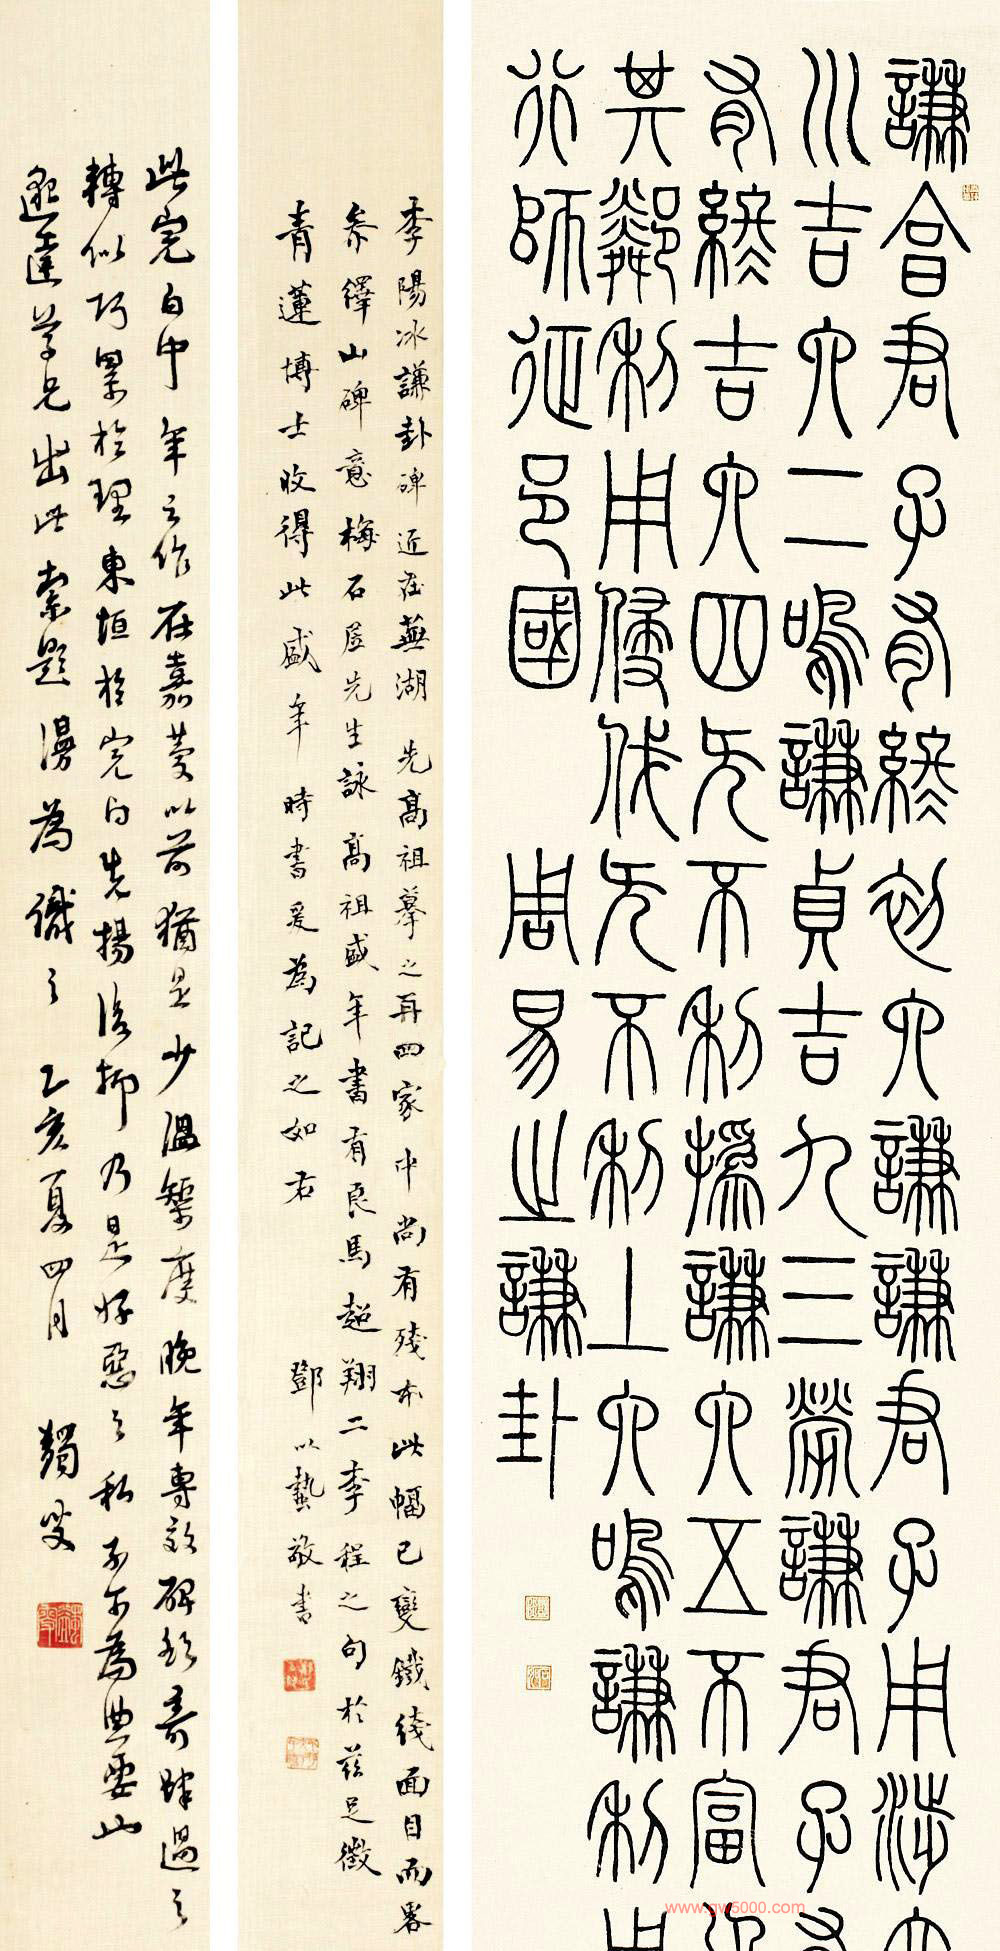 謙亨君子有終初六謙謙君子用涉大
川吉六二鳴謙貞吉九三勞謙君子有
有終吉六四无不利撝謙六五不富以
其鄰利用侵伐无不利上六鳴謙利用
行師征邑國 周易之謙卦
李陽冰謙卦碑近在蕪湖先高祖摹之再四家中尚有殘本此幅已變鐵綫面目而畧
參繹山碑意梅石居先生詠高祖盛年書有良馬超翔二李程之句於茲足徵
青蓮博士收得此盛年時書爰為記之如右 鄧以蟄敬書
此完白中年之作在嘉慶以前猶是少溫榘度晚年專效碑額奇肆過之
轉似巧累於理東垣於完白先揚後抑乃是好惡之私不可為典要也
達學兄出此索題漫為識之 乙亥夏四月 蠲叟
www.gw5000.com